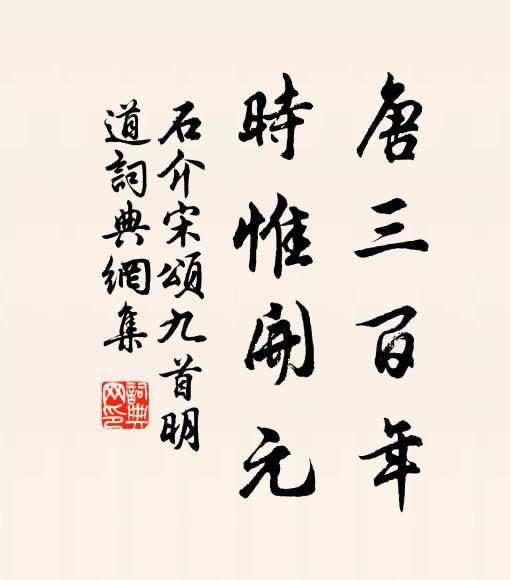 唐三百年
時惟開元
石介宋頌九首明
道詞典網集
詞典網印